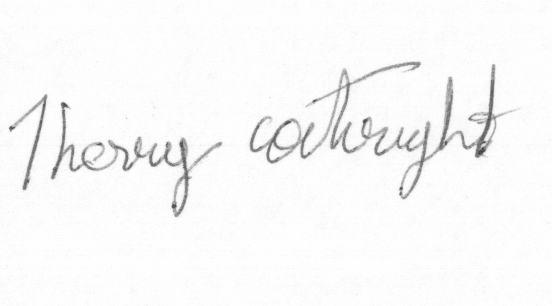 Thorry cartwright